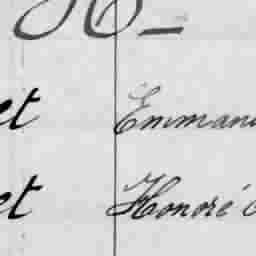 et Emmanu
et Honoré